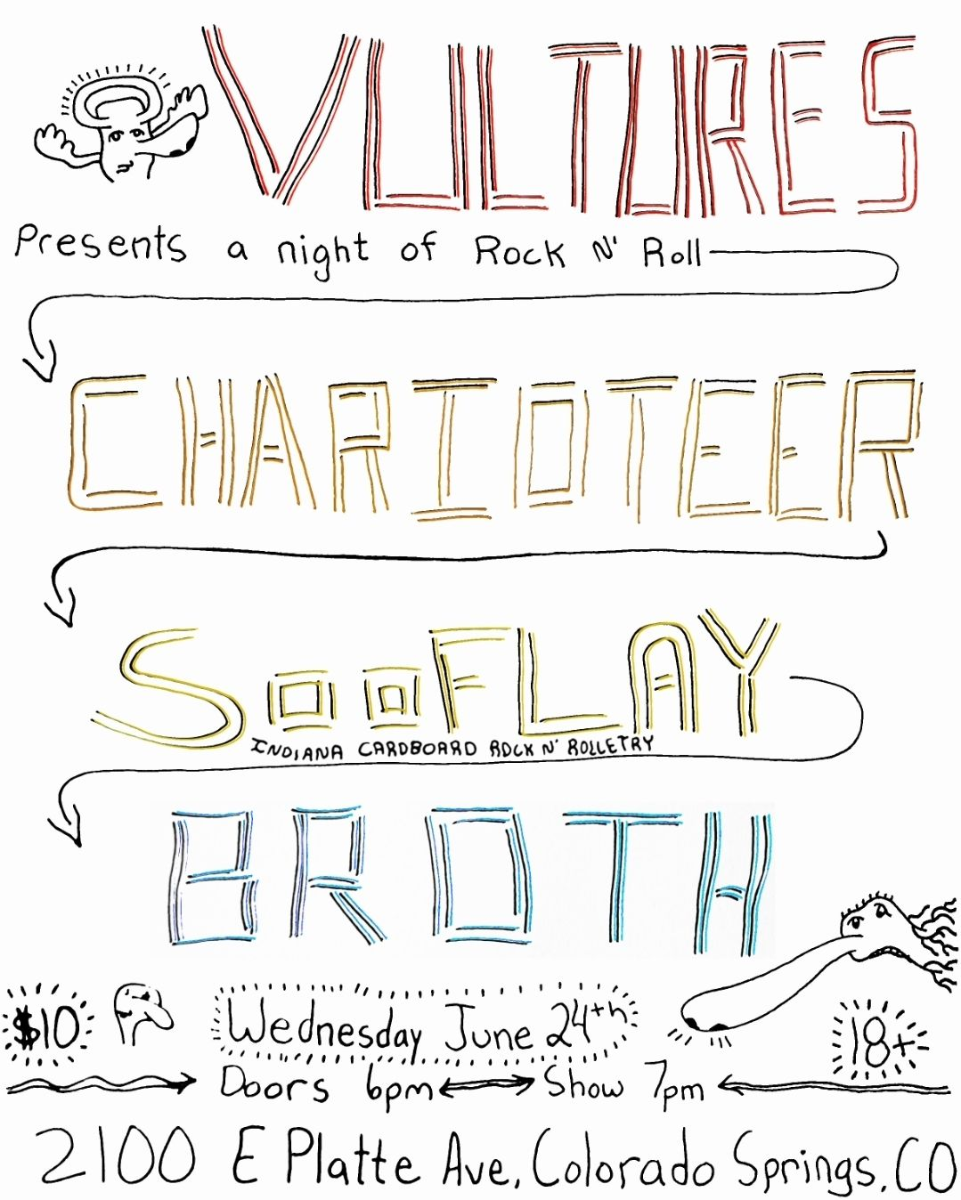 VULTURES
Presents a night of Rock N' Roll
CHARIOTEER
SooFLAY
INDIANA CARDBOARD ROCK N' ROLLETRY
BROTH
$10 Wednesday June 24th 18+
Doors 6pm Show 7pm
2100 E Platte Ave, Colorado Springs, CO